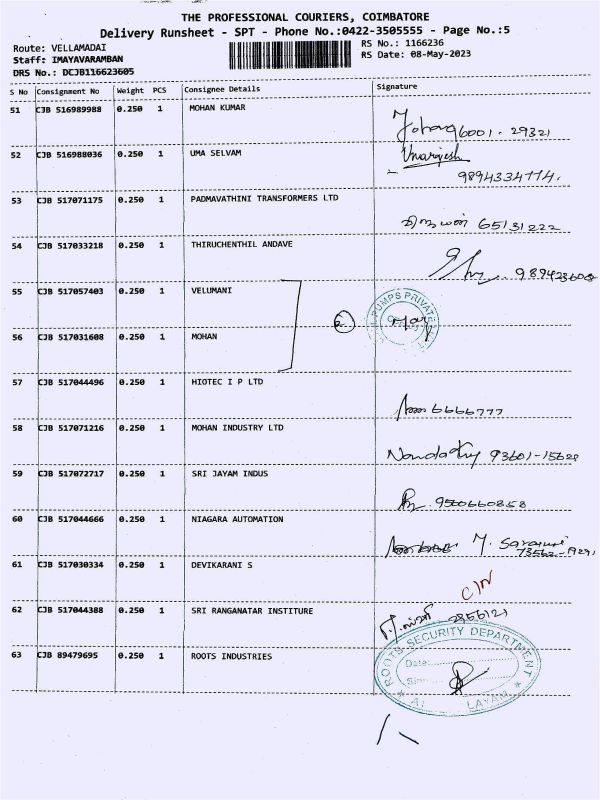 THE PROFESSIONAL COURIERS, COIMBATORE
Delivery Runsheet - SPT - Phone No.:0422-3505555 - Page No.:5
Route: VELLAMADAI
RS No.: 1166236
Staff: IMAYAVARAMBAN
RS Date: 08-May-2023
DRS No.: DCJB116623605
S No Consignment No Weight PCS Consignee Details Signature
51 CJB 516989988 0.250 1 MOHAN KUMAR
6001-29321
52 CJB 516988036 0.250 1 UMA SELVAM
9894334774.
53 CJB 517071175 0.250 1 PADMAVATHINI TRANSFORMERS LTD
65131222
54 CJB 517033218 0.250 1 THIRUCHENTHIL ANDAVE
55 CJB 517057403 0.250 1 VELUMANI
PUMPS PRIVATE
56 CJB 517031608 0.250 1 MOHAN
57 CJB 517044496 0.250 1 HIOTEC I P LTD
6666777
58 CJB 517071216 0.250 1 MOHAN INDUSTRY LTD
93601-15628
59 CJB 517072717 0.250 1 SRI JAYAM INDUS
9500660858
60 CJB 517044666 0.250 1 NIAGARA AUTOMATION
M.
61 CJB 517030334 0.250 1 DEVIKARANI S
C/N
62 CJB 517044388 0.250 1 SRI RANGANATAR INSTITURE
63 CJB 89479695 0.250 1 ROOTS INDUSTRIES
ROOTS SECURITY DEPARTMENT
Date:
Sign
LAYAM